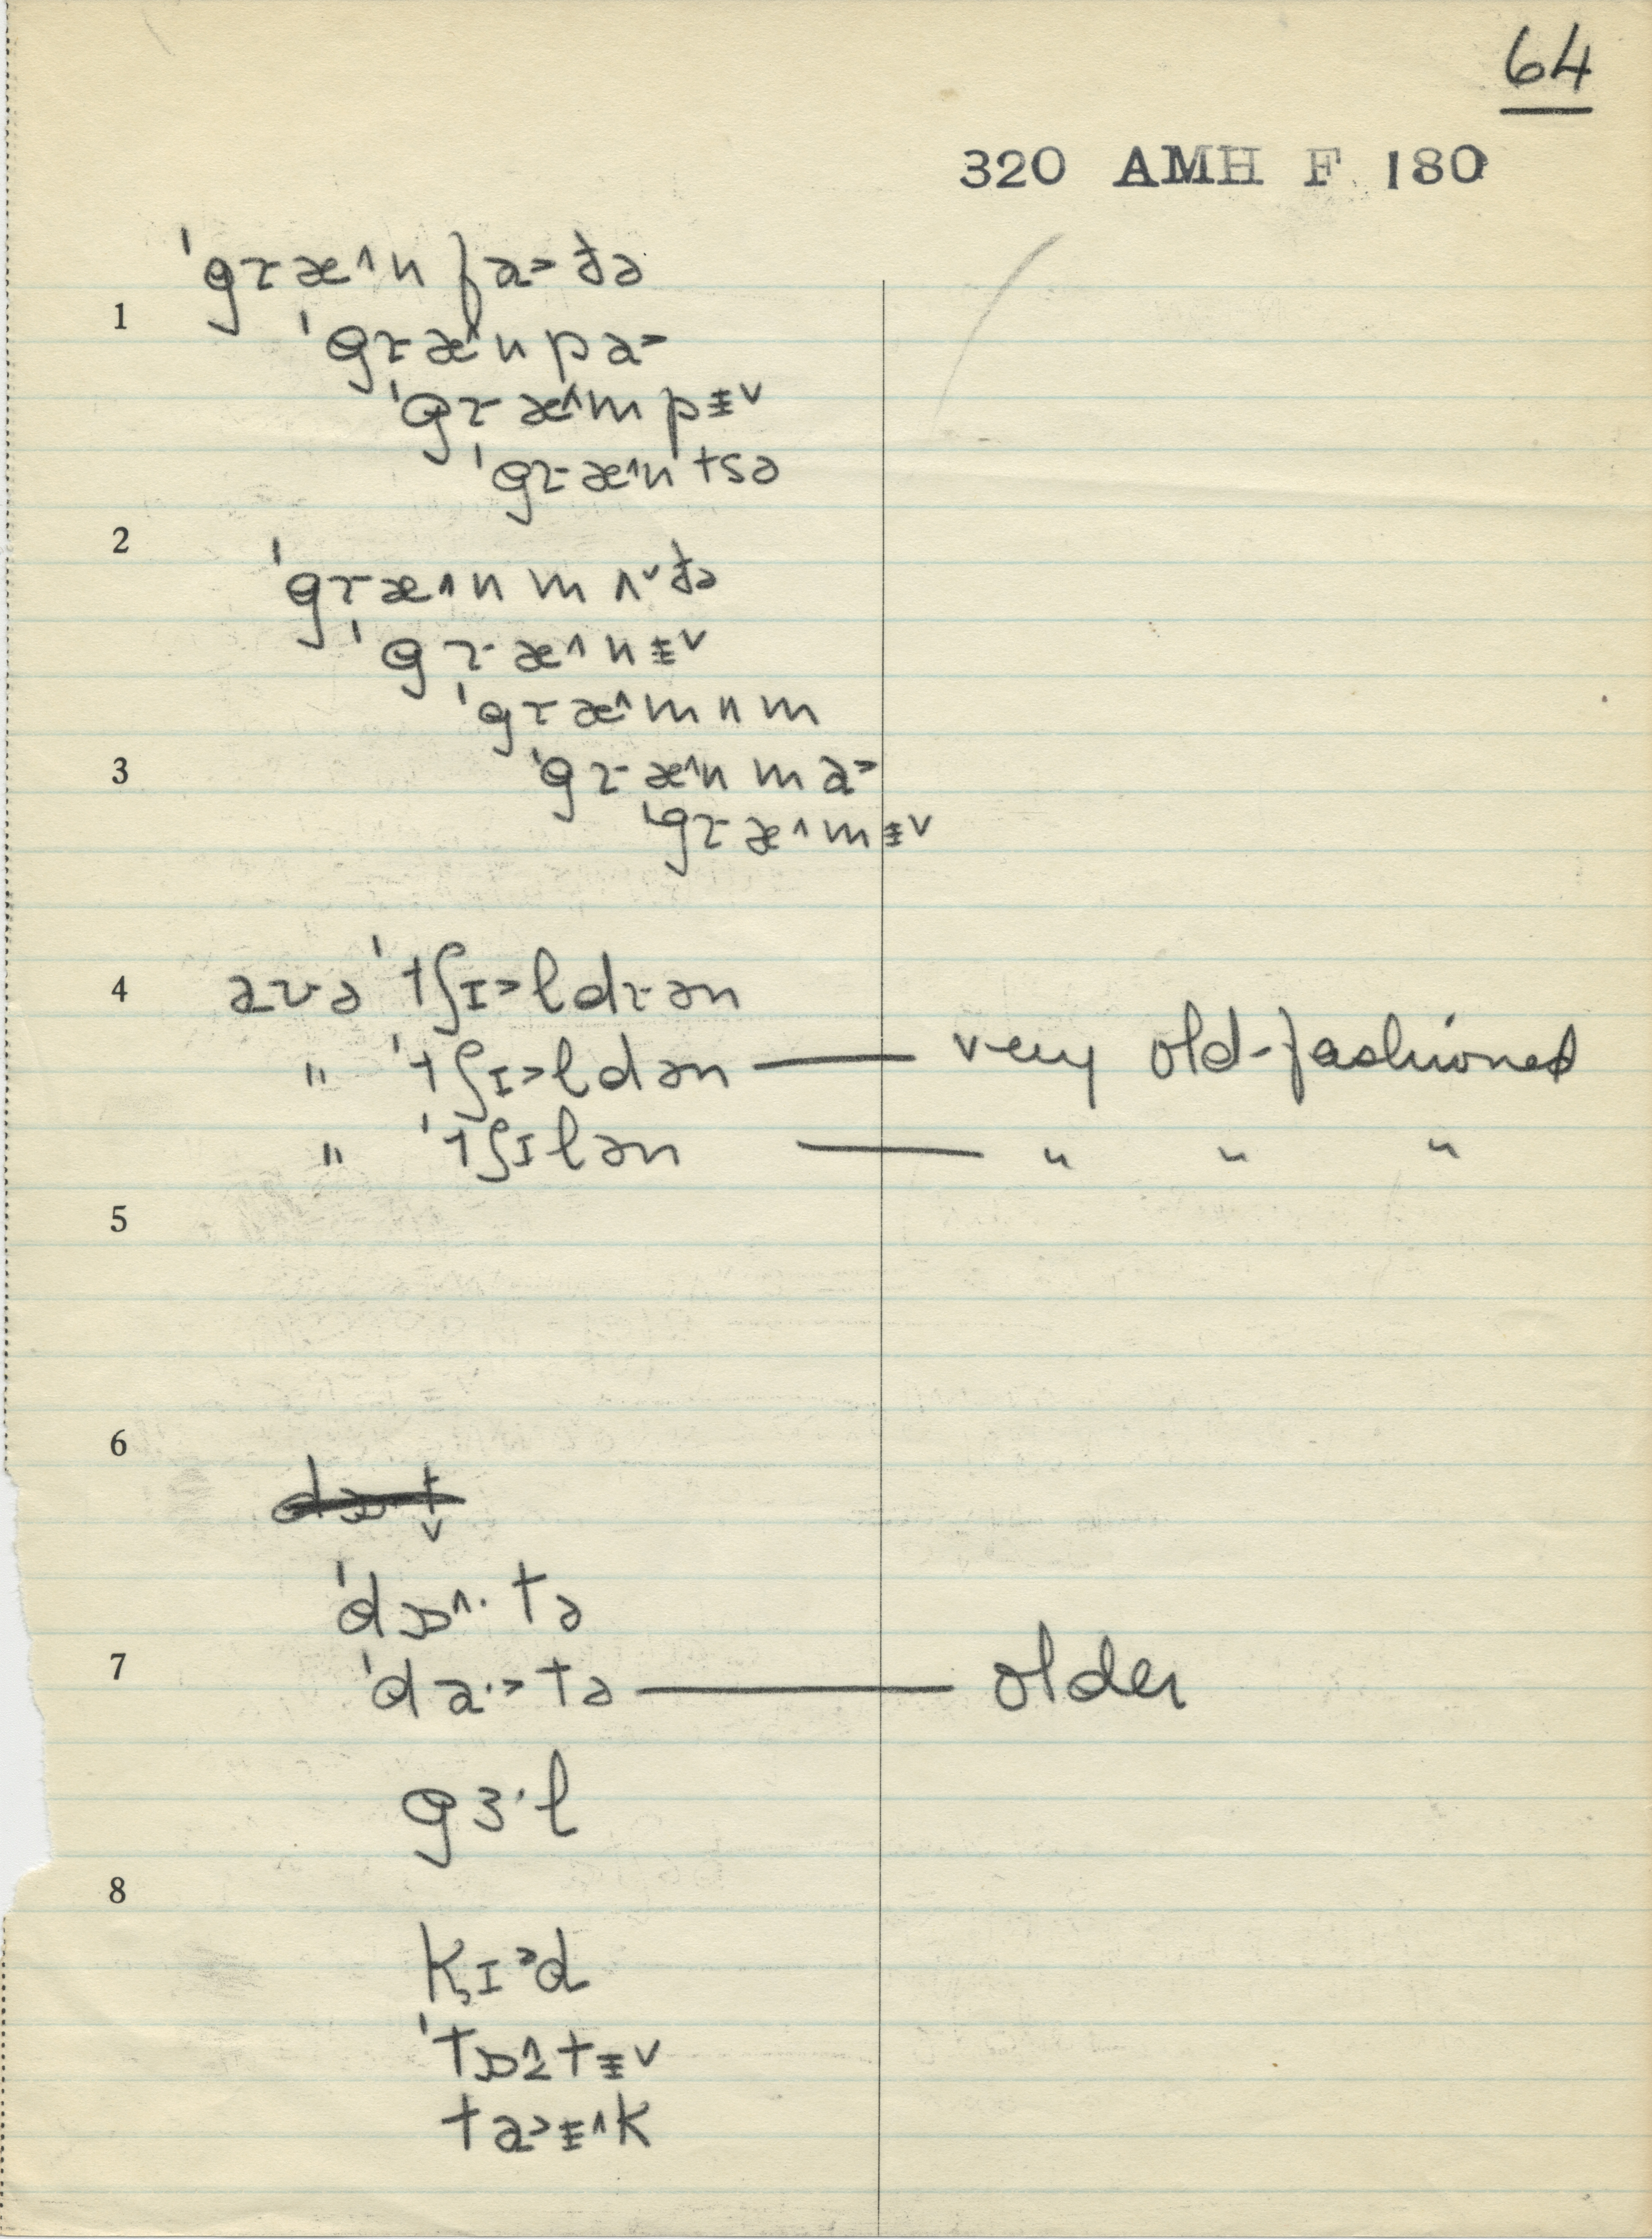 64
320 AMH F 180
ˈgræ^n fa>ðə
1
ˈgræ^n pa>
ˈgræ^m pɪ̵v
ˈgræ^n tsə
2
ˈgræ^n mʌvðə
ˈgræ^nɪ̵v
ˈgræ^mnm
3
ˈgræ^n ma>
ˈgræ^mɪ̵v
4
aʊə ˈtʃɪ>ldrən
" ˈtʃɪ>ldən — very old-fashioned
" ˈtʃɪlən — " " "
5
6
ˈdɒ^·tə
7
ˈda·>tə — older
gɜ·l
8
k̡ɪ>d
ta>ɪ̵^k